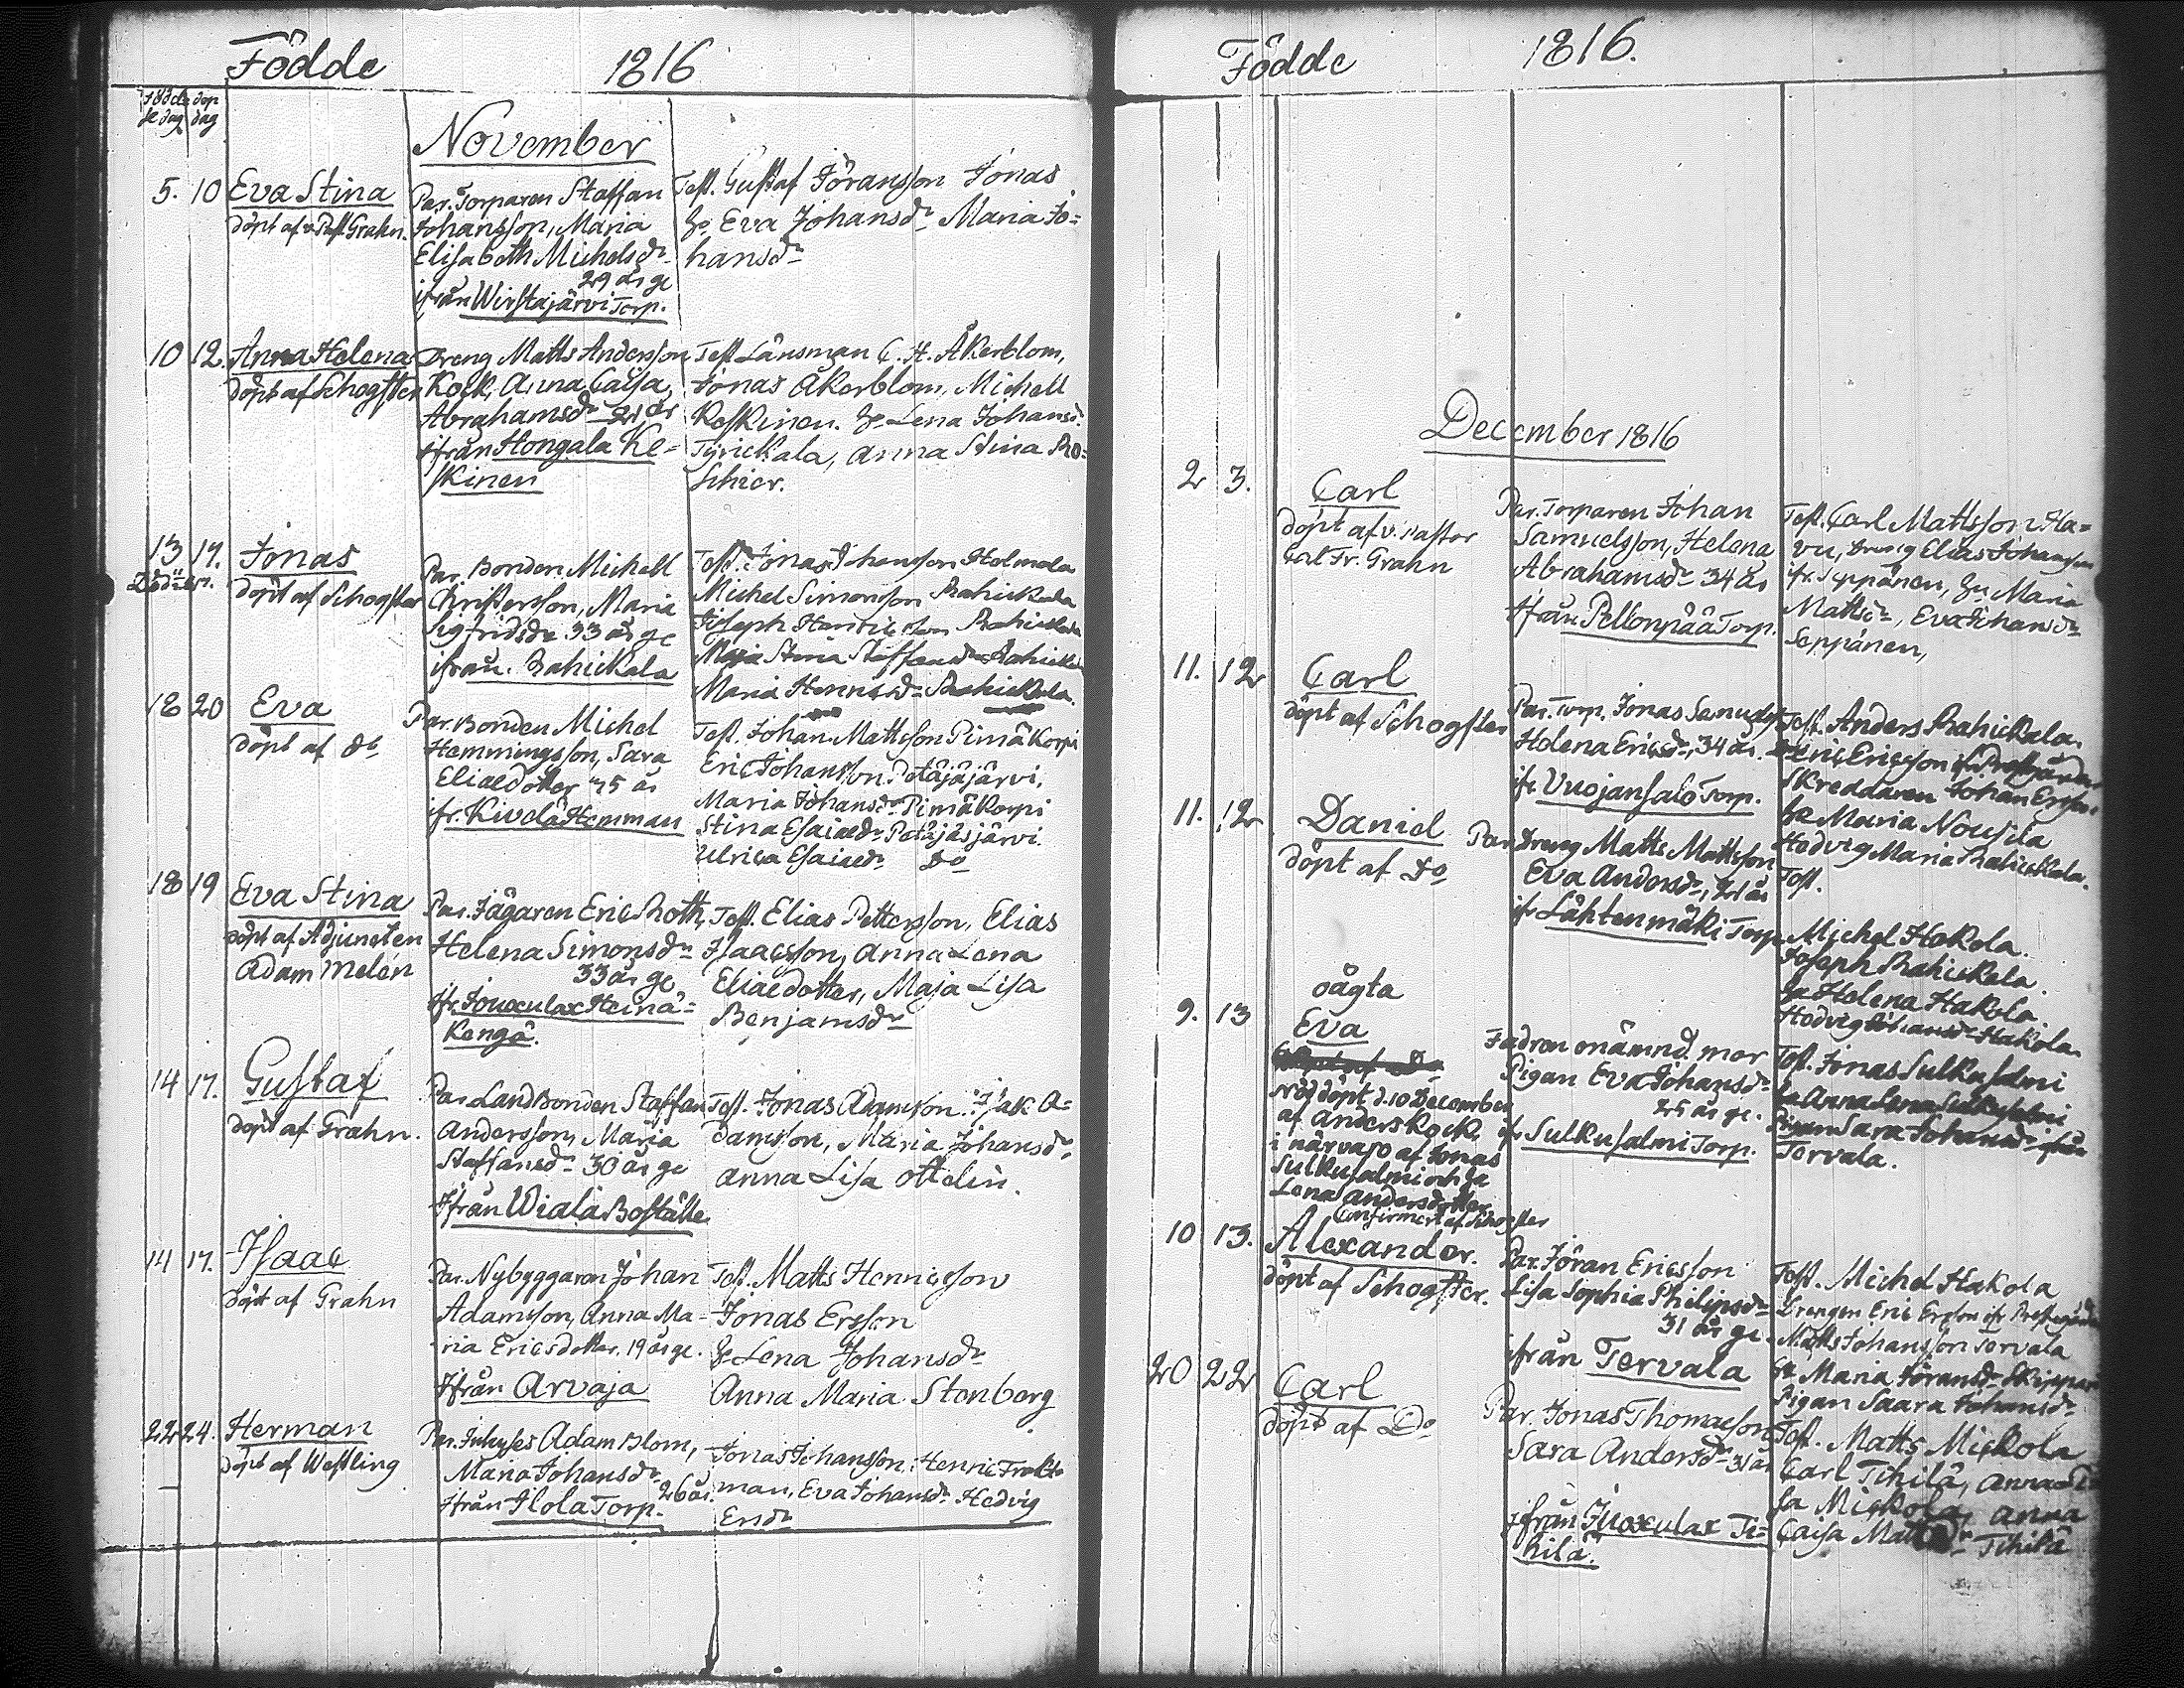 Födde 1816
födelse dag dop dag
November
5. 10 Eva Stina
döpt af v. Past. Grahn.
Par. Torparen Staffan
Johansson, Maria
Elisabeth Michelsdr
29 år ge
ifrån Wirstajärvi Torp.
Test. Gustaf Jöransson Jonas
h. Eva Johansdr Maria Jo=
hansdr
10 12. Anna Helena
döpt af Schogster
Dreng Matts Andersson
Kock, Anna Caisa
Abrahamsdr 21 år
ifrån Hongala Ke=
skinen
Test Länsman C. H. Åkerblom,
Jonas Åkerblom, Michell
Keskinen. h. Lena Johansd.
Tyrickala, Anna Stina Ro=
schier.
13 17. Jonas
döpt af Schogster
Par. Bonden Michell
Christersson, Maria
Sigfridsdr 33 år ge
ifrån. Rahickala
Test. Jonas Johansson Holmola
Michel Simonsson Rahickala
Joseph Henricsson Rahickala
Maja Stina Staffansdr Rahickala
Maria Hennsdr Rahickala.
18 20 Eva
döpt af do
Par. Bonden Michel
Hemmingsson, Sara
Eliaedotter 25 år
ifr. Kivelä Hemman
Test. Johan Mattsson Pimäkorpi
Eric Johansson Potäjäjärvi.
Maria Johansdr Pimäkorpi
Stina Esaiaedr Petäjäsjärvi.
Ulrica Esaiaedr Do
18 19 Eva Stina
döpt af Adjuncten
Adam Melén
Par. Jägaren Eric Roth,
Helena Simonsdr
33 år ge
ifr. Jouxcular Heinä=
kengä.
Test. Elias Pettersson, Elias
Isaacsson, Anna Lena
Eliaedotter, Maja Lisa
Benjamsdr
14 17. Gustaf
döpt af Grahn.
Par. Landbonden Staffan
Andersson, Maria
Staffansdr 30 år ge
Ifrån Wiala Boställe
Test. Jonas Adamson. Isak A=
damsson, Maria Johansdr,
Anna Lisa Ottelin.
14 17. Isaac
döpt af Grahn
Par. Nybyggaren Johan
Adamsson, Anna Ma=
ria Ericsdotter. 19 år ge.
Ifrån Arvaja
Test. Matts Henricsson
Jonas Ersson
h. Lena Johansdr
Anna Maria Stenberg
22 24. Herman
döpt af Westling
Par. Inhyses Adam Blom,
Maria Johansdr
26 år.
Ifrån Ilola Torp.
Jonas Johansson, Henric
man, Eva Johansdr Hedvig
Ersdr
Födde 1816.
December 1816
2 3. Carl
döpt af v. Pastor
Carl Fr. Grahn
Par. Torparen Johan
Samuelsson, Helena
Abrahamsdr 34 år
ifrån Pellonpää Torp.
Test. Carl Mattsson Ha=
vu, Dreng Elias Johansson
ifr. Seppänen, hu Maria
Mattsdr, Eva Johansdr
Seppänen,
11. 12 Carl
döpt af Schogster
Par. Torp. Jonas Samuelss
Helena Ericsdr, 34 år.
ifr. Vuojansalo Torp.
Test. Anders Rahickala.
Eric Ericsson
Skreddaren Johan Ersson
hu Maria Nousila
Hedvig Maria Rahickala.
11. 12 Daniel
döpt af Do
Par. Dreng Matts Mattsson
Eva Andersdr, 21 år
ifr Lähtenmäki Torp
Test.
Michel Hakola.
Joseph Rahickala.
hu Helena Hakola
Hedvig Johansdr Hakola.
oägta
9. 13 Eva
Nöddöpt d. 10 December
af Anders Kock
i närvaro af Jonas
Sulkusalmi och hu
Lena Andersdotter
Confirmert af Schogster
Fadren onämnd. mor
Pigan Eva Johansdr
25 år ge.
ifr Sulkusalmi Torp.
Test. Jonas Sulkusalmi
hu Anna Lena Sulkusalmi
Pigan Sara Johansdr ifrån
Tervala.
10 13. Alexander.
döpt af Schogster.
Par. Jöran Ericsson
Lisa Sophia Philipsdr
31 år ge.
ifrån Tervala
Test. Michel Hakola
Drengen Eric Ersson ifr Prestegården
Matts Johansson Tervala
hu Maria Jöransdr
Pigan Saara Johansdr
20 22 Carl
döpt af Do
Par. Jonas Thomaeson
Sara Andersdr 31 år
ifrån Juoxular Ti=
hilä.
Test. Matts Mickola
Carl Tihilä, Anna Li
sa Mickola, Anna
Caisa Mattsdr Tihilä